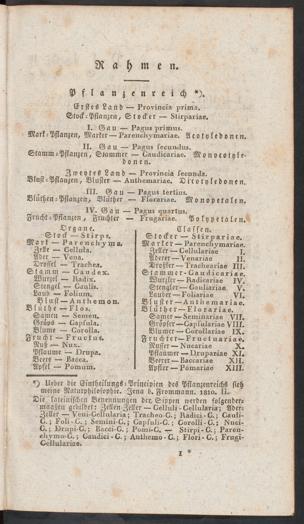 Rahmen.
Pflanzenreich *).
Erstes Land — Provincia prima.
Stock-Pflanzen, Stocker — Stirpariae.
I. Gau — Pagus primus.
Mark-Pflanzen, Marker — Parenchymariae. Acotyledonen.
II. Gau — Pagus secundus.
Stamm-Pflanzen, Stammer — Caudicariae. Monocotyle-
donen.
Zweytes Land — Provincia secunda.
Blust-Pflanzen, Bluster — Anthemariae. Dicotyledonen.
III. Gau — Pagus tertius.
Blüthen-Pflanzen, Blüther — Florariae. Monopetalen.
IV. Gau — Pagus quartus.
Frucht-Pflanzen, Fruchter — Frugariae. Polypetalen.
Organe.
Stock — Stirps.
Mark — Parenchyma.
Zelle — Cellula.
Ader — Vena.
Drossel — Trachea.
Stamm — Caudex.
Wurzel — Radix.
Stengel — Caulis.
Laub — Folium.
Blust — Anthemon.
Blüthe — Flos.
Samen — Semen.
Gröps — Capsula.
Blume — Corolla.
Frucht — Fructus.
Nuß — Nux.
Pflaume — Drupa.
Beere — Bacca.
Apfel — Pomum.
Classen.
Stocker — Stirpariae.
Marker — Parenchymariae.
Zeller — Cellulariae I.
Aderer — Venariae II.
Droßler — Tracheariae III.
Stammer — Caudicariae.
Wurzler — Radicariae IV.
Stengler — Cauliariae V.
Lauber — Foliariae VI.
Bluster — Anthemariae.
Blüther — Florariae.
Samer — Seminariae VII.
Gröpser — Capsulariae VIII.
Blumer — Corollariae IX.
Fruchter — Fructuariae.
Nusser — Nucariae X.
Pflaumer — Drupariae XI.
Beerer — Baccariae XII.
Apfler — Pomariae XIII.
*) Ueber die Eintheilungs-Principien des Pflanzenreichs sieh
meine Naturphilosophie. Jena b. Frommann. 1810. II.
Die lateinischen Benennungen der Sippen werden folgender-
maaßen gebildet: Zellen Zeller — Celluli-Cellularia; Ader-
Zeller — Veni-Cellularia; Tracheo-C.; Radici-C.; Cauli-
C.; Foli-C.; Semini-C.; Capsuli-C.; Corolli-C.; Nuci-
C.; Drupi-C.; Bacci-C.; Pomi-C. — Stirpi-C.; Paren-
chymo-C.; Caudici-C.; Anthemo-C.; Flori-C.; Frugi-
Cellulariae.
1 *